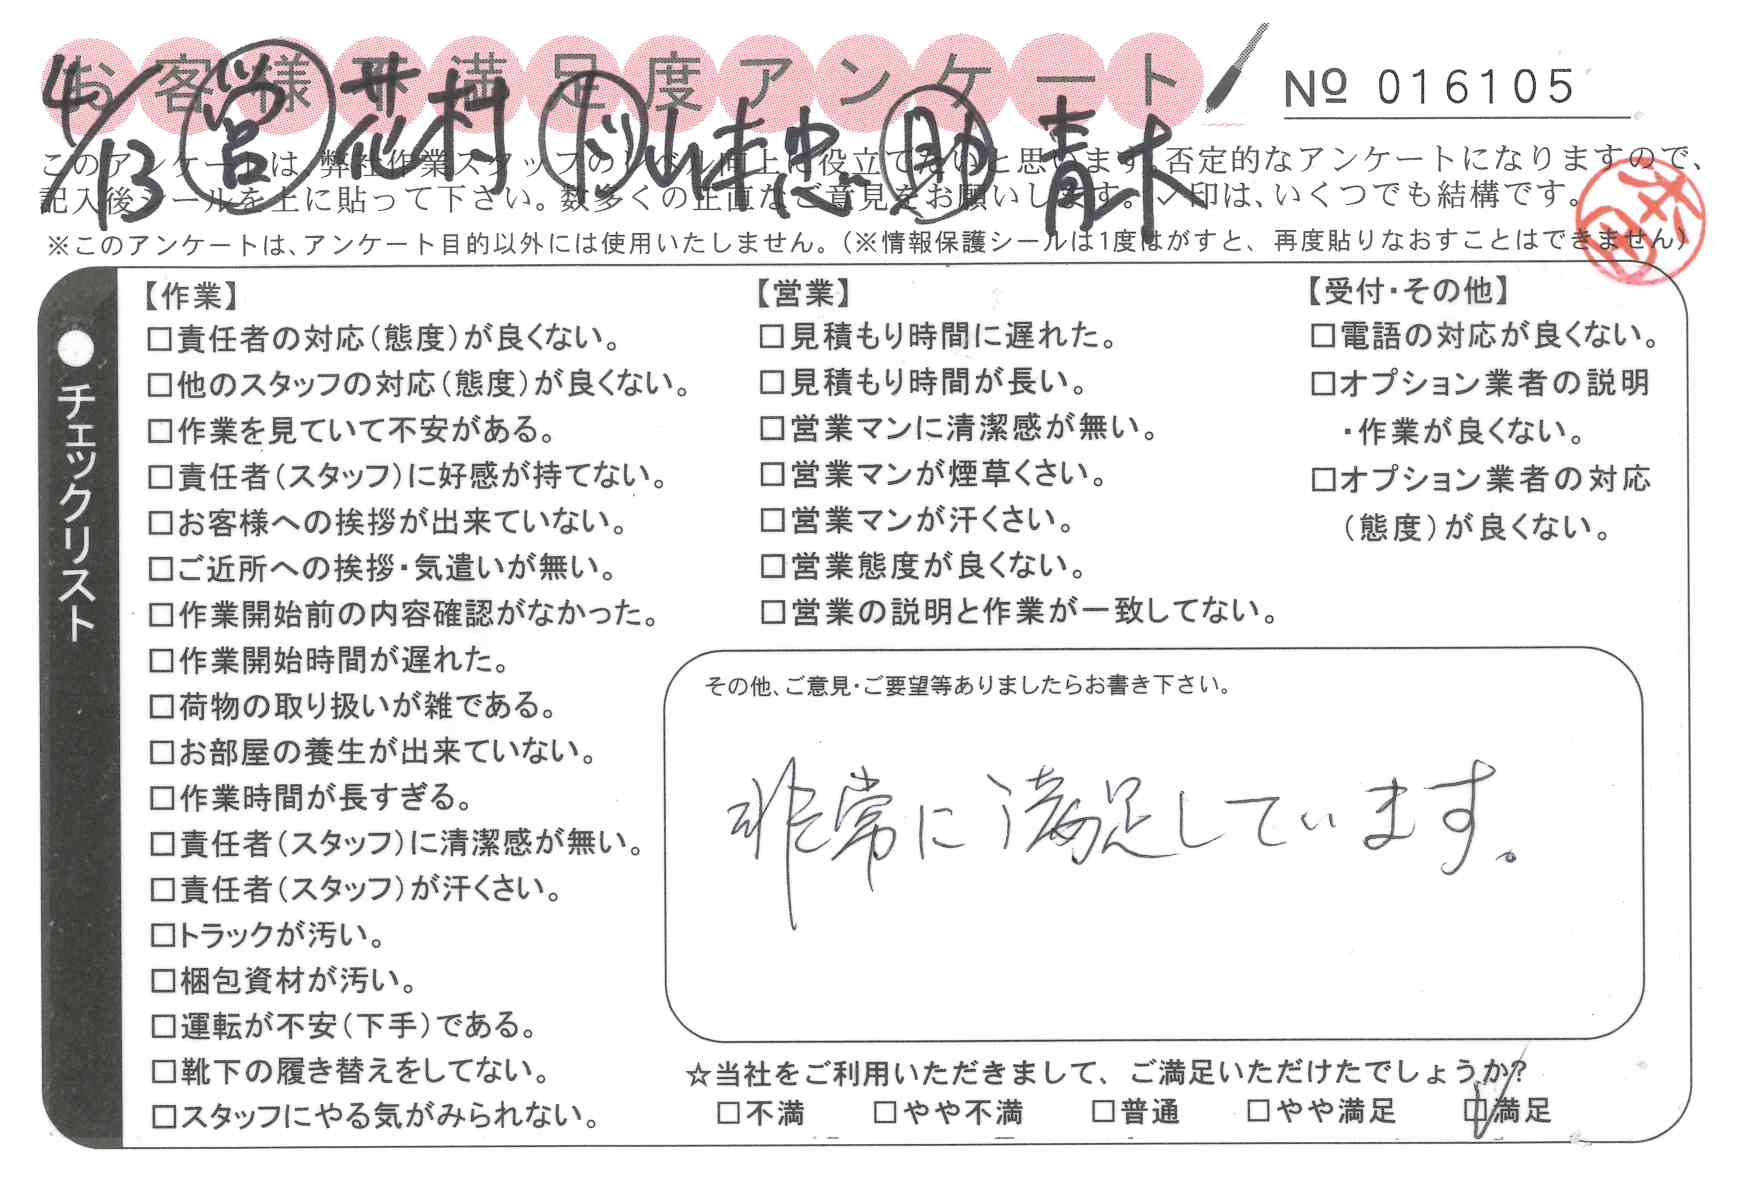 お客様不満足度アンケート
№ 016105
4/13 営 村 ト 山本 助 青木
このアンケートは、弊社作業スタッフのレベル向上に役立てたいと思います。否定的なアンケートになりますので、
記入後シールを上に貼って下さい。数多くの正直なご意見をお願いします。✓印は、いくつでも結構です。
※このアンケートは、アンケート目的以外には使用いたしません。(※情報保護シールは1度はがすと、再度貼りなおすことはできません)
●チェックリスト
【作業】
□責任者の対応(態度)が良くない。
□他のスタッフの対応(態度)が良くない。
□作業を見ていて不安がある。
□責任者(スタッフ)に好感が持てない。
□お客様への挨拶が出来ていない。
□ご近所への挨拶・気遣いが無い。
□作業開始前の内容確認がなかった。
□作業開始時間が遅れた。
□荷物の取り扱いが雑である。
□お部屋の養生が出来ていない。
□作業時間が長すぎる。
□責任者(スタッフ)に清潔感が無い。
□責任者(スタッフ)が汗くさい。
□トラックが汚い。
□梱包資材が汚い。
□運転が不安(下手)である。
□靴下の履き替えをしてない。
□スタッフにやる気がみられない。
【営業】
□見積もり時間に遅れた。
□見積もり時間が長い。
□営業マンに清潔感が無い。
□営業マンが煙草くさい。
□営業マンが汗くさい。
□営業態度が良くない。
□営業の説明と作業が一致してない。
【受付・その他】
□電話の対応が良くない。
□オプション業者の説明
・作業が良くない。
□オプション業者の対応
(態度)が良くない。
その他、ご意見・ご要望等ありましたらお書き下さい。
非常に満足しています。
☆当社をご利用いただきまして、ご満足いただけたでしょうか?
□不満 □やや不満 □普通 □やや満足 □満足